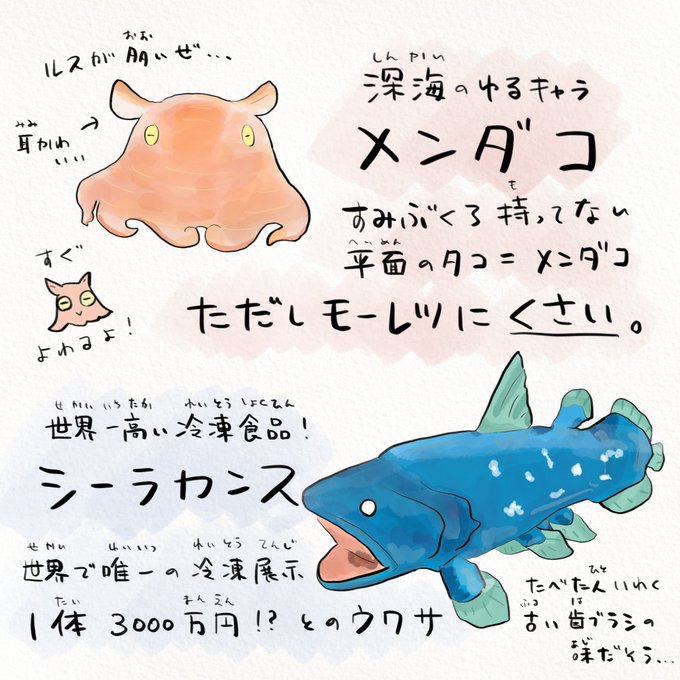 おお
ルスが多いぜ…
みみ
耳かわ
いい
すぐ
よわるよ!
しんかい
深海のゆるキャラ
メンダコ
も
すみぶくろ持ってない
へいめん
平面のタコ=メンダコ
ただしモーレツにくさい。
せかいいちたか れいとうしょくひん
世界一高い冷凍食品!
シーラカンス
せかい ゆいいつ れいとうてんじ
世界で唯一の冷凍展示
たい まんえん
1体 3000万円!?とのウワサ
ひと
たべた人いわく
ふる は
古い歯ブラシの
あじ
味だそう…